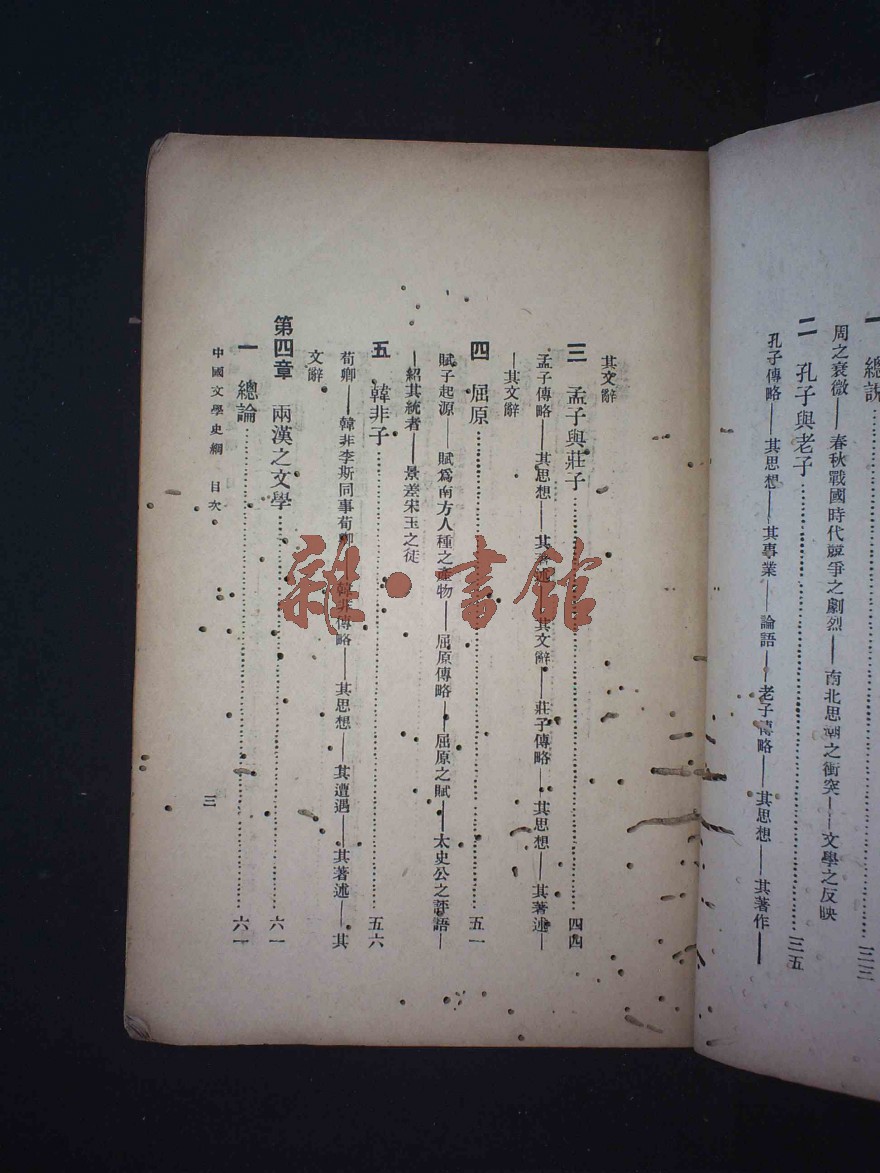 一 總説……三三
周之衰微——春秋戰國時代競爭之劇烈——南北思潮之衝突——文學之反映
二 孔子與老子……三五
孔子傳略——其思想——其事業——論語——老子傳略——其思想——其著作——
其文辭
三 孟子與莊子……四四
孟子傳略——其思想——其著述——其文辭——莊子傳略——其思想——其著述—
—其文辭
四 屈原……五一
賦子起源——賦爲南方人種之產物——屈原傳略——屈原之賦——太史公之評語—
—紹其統者——景差宋玉之徒
五 韓非子……五六
荀卿——韓非李斯同事荀卿——韓非傳略——其思想——其遭遇——其著述——其
文辭
第四章 兩漢之文學……六一
一 總論……六一
中國文學史綱 目次
三
雜·書館